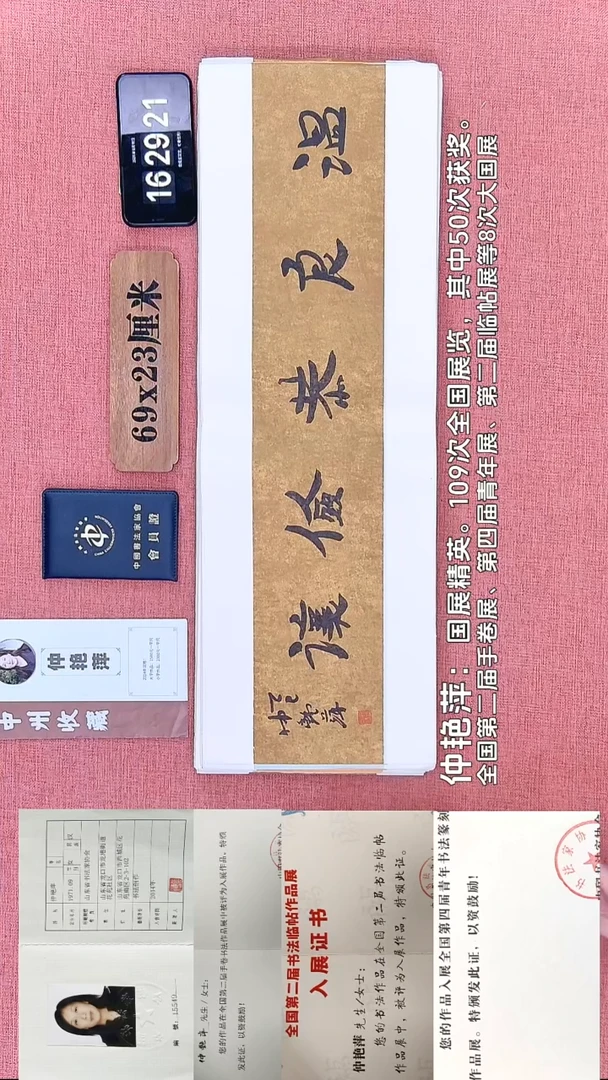 16 29 21
69x23厘米
中國書法家協會
會員證
仲艳萍
中州收藏
温良恭俭让
仲艳萍
仲艳萍：国展精英。109次全国展览，其中50次获奖。
全国第二届手卷展、第四届青年展、第二届临帖展等8次大国展
仲艳萍 先生/女士：
您的作品在全国第二届手卷书法作品展中被评为入展作品，特颁
发此证，以资鼓励！
全国第二届书法临帖作品展
入展证书
仲艳萍 先生/女士：
您的书法作品在全国第二届书法临帖
作品展中，被评为入展作品，特颁此证。
您的作品入展全国第四届青年书法篆刻
作品展。特颁发此证，以资鼓励！